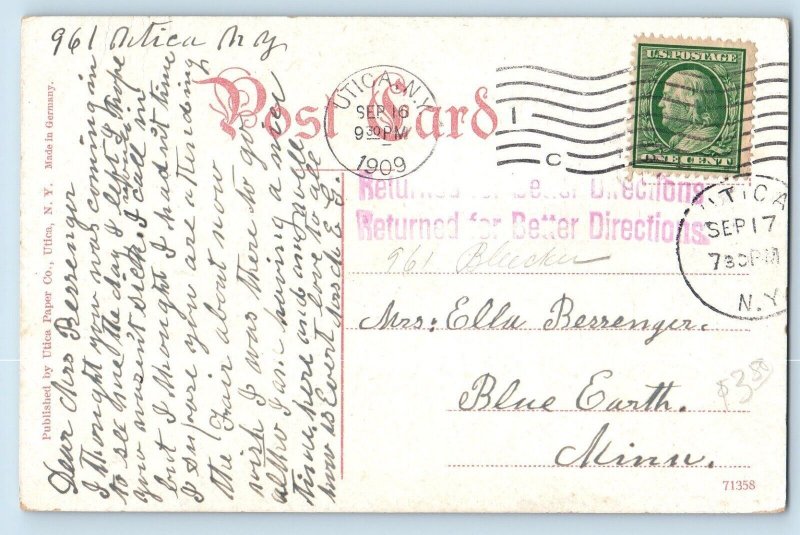 961 Utica N Y
Dear Mrs Berrenger
I thought you was coming in
to see me the day I left I hope
you wasn't sick. I call on
but I thought I hadn't time
I supose you are attending
the Fair about now
wish I was there to go
altho I am having a nice
time here and am well
how is Evert love to all
Published by Utica Paper Co., Utica, N. Y. Made in Germany.
Post Card
UTICA, N.Y.
SEP 16
9 30 PM
1909
1
C
U.S. POSTAGE
ONE CENT
UTICA
SEP 17
7 30 PM
N.Y.
Returned for Better Directions.
Returned for Better Directions.
961 Bleecker
Mrs: Ella Berrenger.
Blue Earth.
Minn.
$3.50
71358